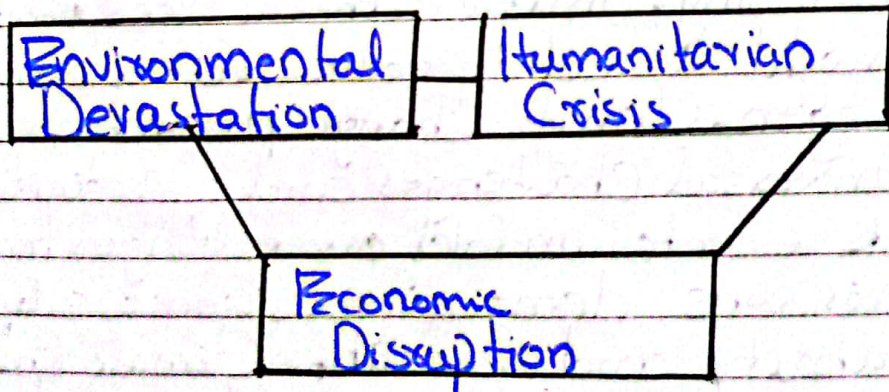 Environmental
Devastation
Humanitarian
Crisis
Economic
Disruption